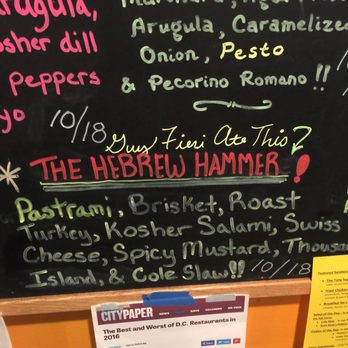 arugula,
osher dill
peppers
yo 10/18
Arugula, Caramelized
Onion, Pesto
& Pecorino Romano !!
10/
Guy Fieri Ate This?
* THE HEBREW HAMMER!
Pastrami, Brisket, Roast
Turkey, Kosher Salami, Swiss
Cheese, Spicy Mustard, Thousa
Island, & Cole Slaw!! 10/18
CITYPAPER
The Best and Worst of D.C. Restaurants in
2016